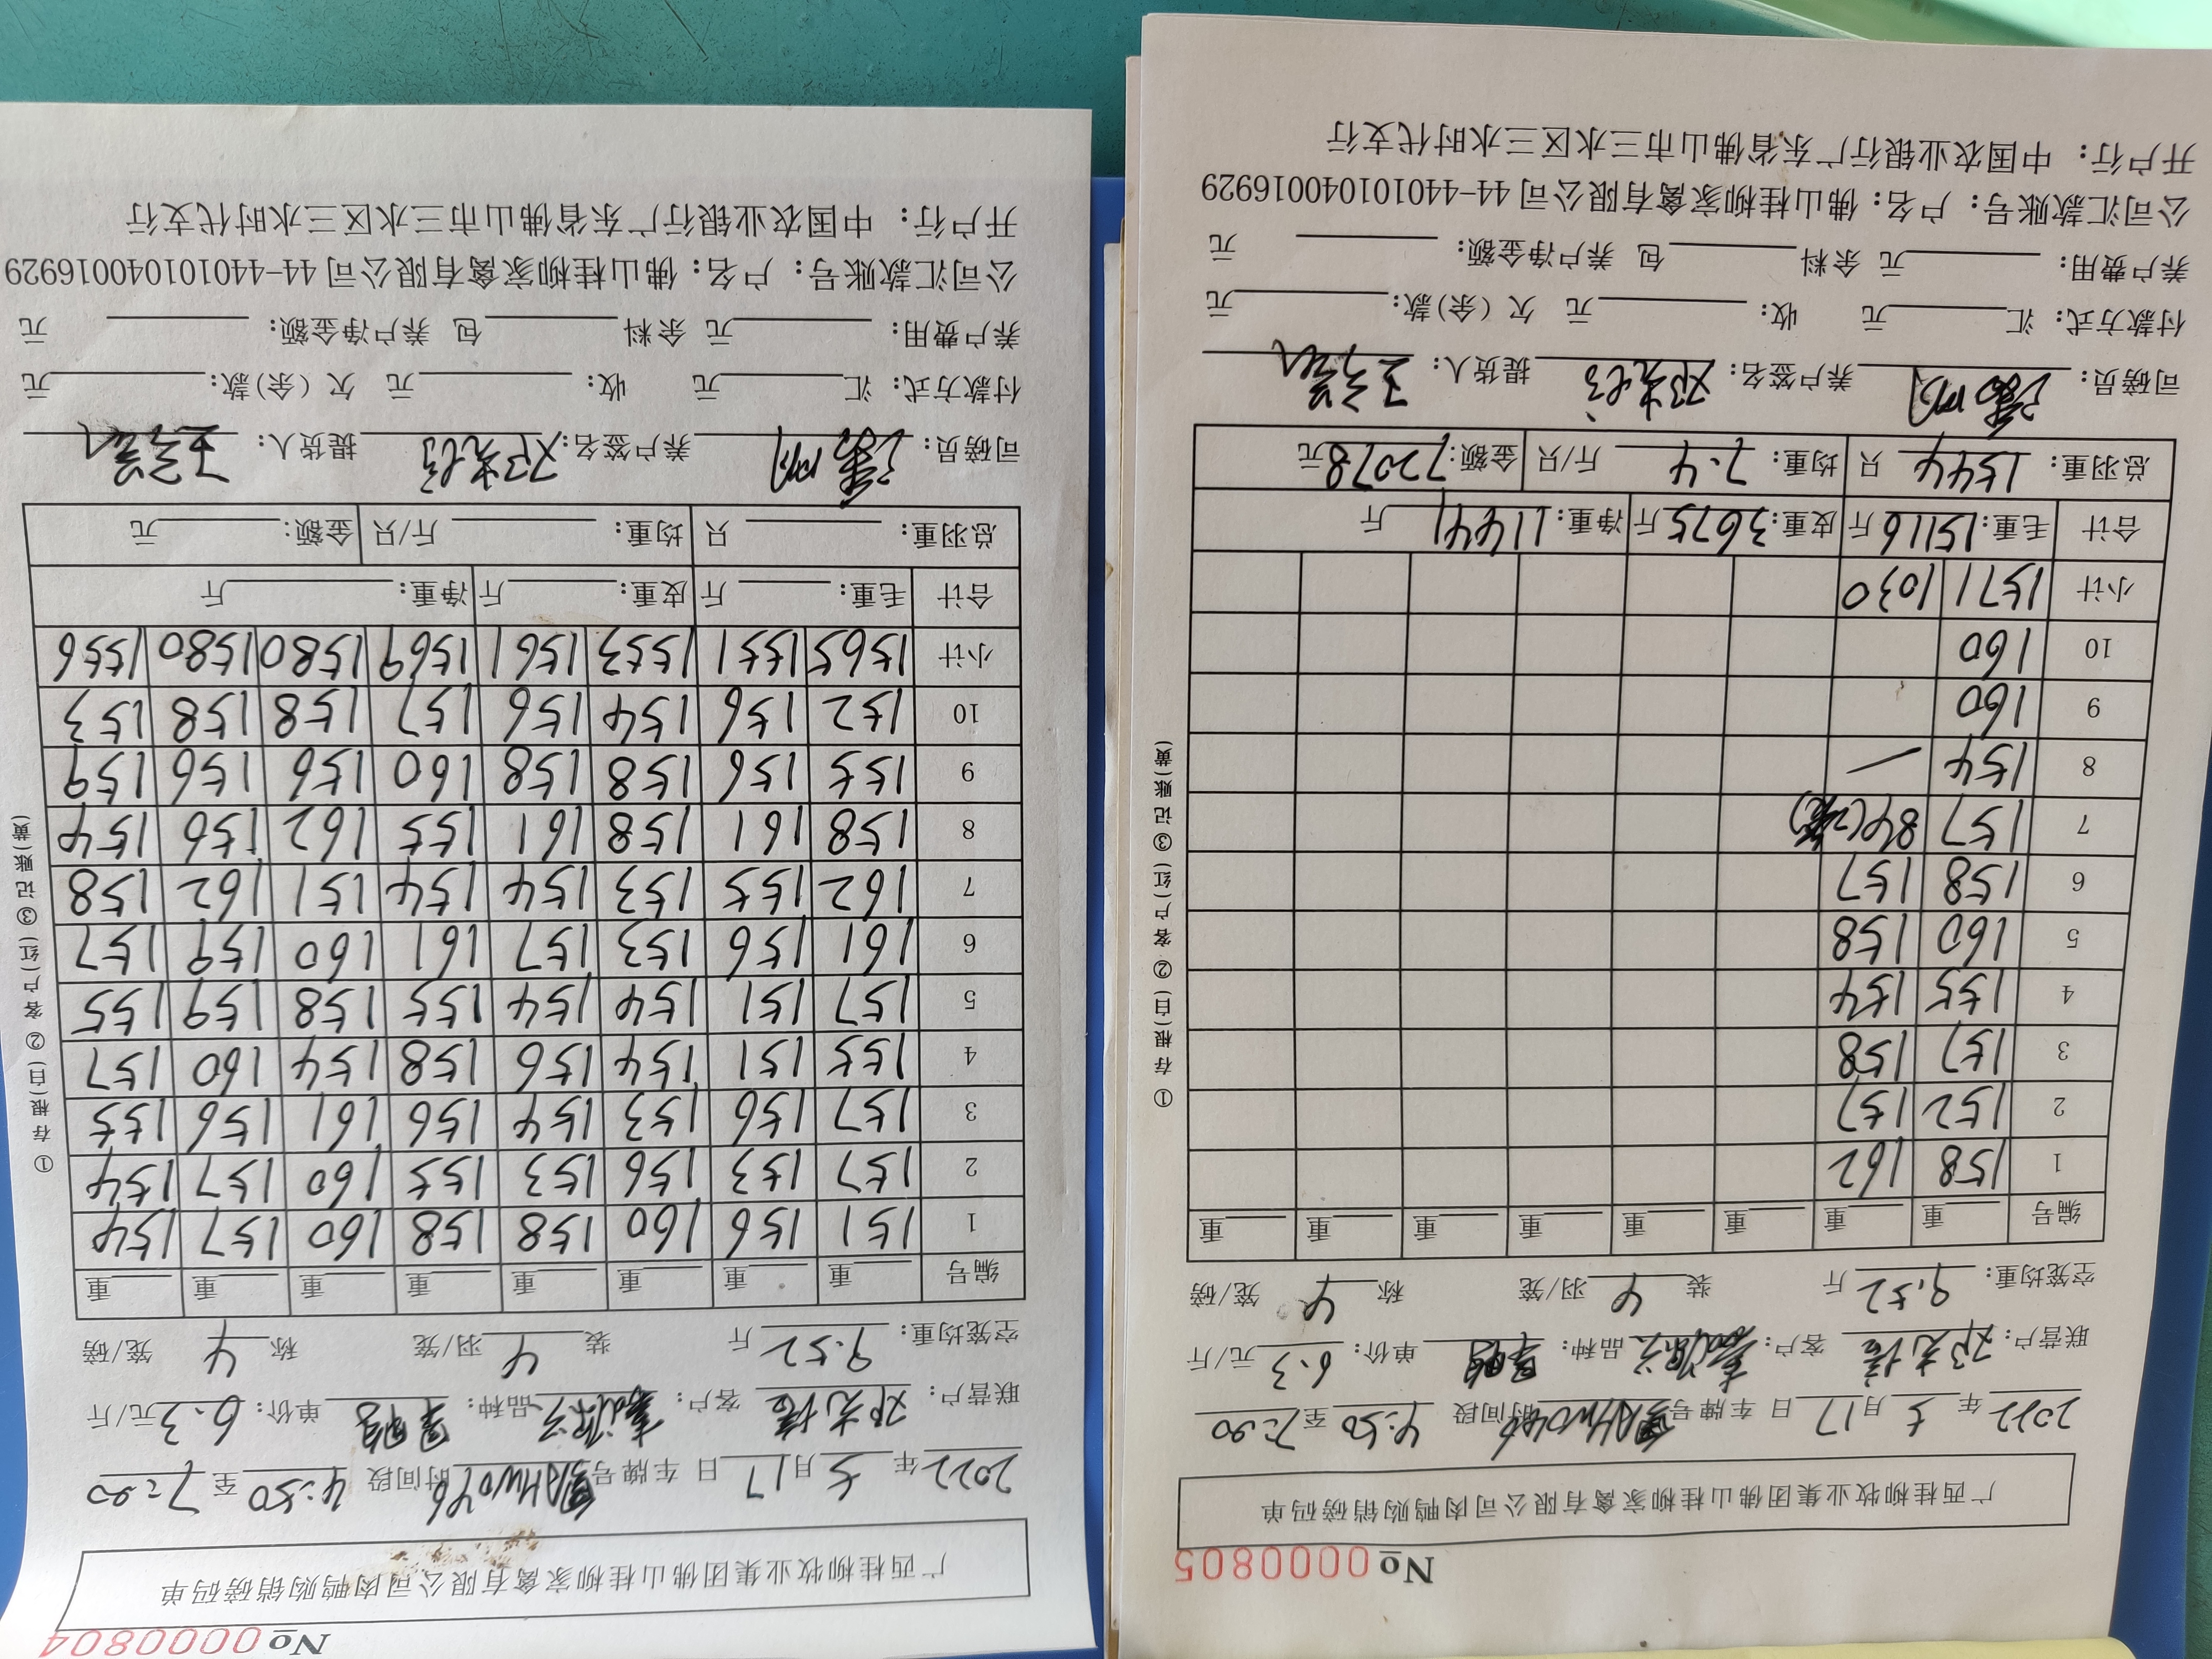 No 0000804
广西桂柳牧业集团佛山桂柳家禽有限公司肉鸭购销磅码单
2022年 七月17日 车牌号 AHW046 时间段 4:50至7:20
联营户: 邓尤 客户: 品种: 单价: 6.3元/斤
空笼均重: 9.52斤 装 4羽/笼 称 4笼/磅
编号 重 重 重 重 重 重 重 重
1 151 156 160 158 158 160 157 154
2 157 153 156 153 155 160 157 154
3 157 156 153 154 156 161 156 155
4 155 151 154 156 158 154 160 157
5 157 151 154 154 155 158 159 155
6 161 156 153 157 161 160 159 157
7 162 155 153 154 154 151 162 158
8 158 161 158 161 155 162 156 154
9 155 156 158 158 160 156 156 159
10 152 156 154 156 157 158 158 153
小计 1565 1551 1553 1561 1569 1580 1580 1556
合计 毛重: 斤 皮重: 斤 净重: 斤
总羽重: 只 均重: 斤/只 金额: 元
司磅员: 养户签名: 提货人:
付款方式: 汇 元 收: 元 欠(余)款: 元
养户费用: 元 余料 包 养户净金额: 元
公司汇款账号: 户名: 佛山桂柳家禽有限公司 44-440101040016929
开户行: 中国农业银行广东省佛山市三水区三水时代支行
①存根(白) ②客户(红) ③记账(黄)
No 0000805
广西桂柳牧业集团佛山桂柳家禽有限公司肉鸭购销磅码单
2022年 七月17日 车牌号 AHW046 时间段 4:50至7:20
联营户: 邓尤 客户: 品种: 单价: 6.3元/斤
空笼均重: 9.52斤 装 4羽/笼 称 4笼/磅
编号 重 重 重 重 重 重 重 重
1 158 162
2 152 157
3 157 158
4 155 154
5 160 158
6 158 157
7 157 84(2笼)
8 154 —
9 160
10 160
小计 1571 1030
合计 毛重: 15116斤 皮重: 3675斤 净重: 11441斤
总羽重: 1544只 均重: 7.4斤/只 金额: 72078元
司磅员: 养户签名: 提货人:
付款方式: 汇 元 收: 元 欠(余)款: 元
养户费用: 元 余料 包 养户净金额: 元
公司汇款账号: 户名: 佛山桂柳家禽有限公司 44-440101040016929
开户行: 中国农业银行广东省佛山市三水区三水时代支行
①存根(白) ②客户(红) ③记账(黄)